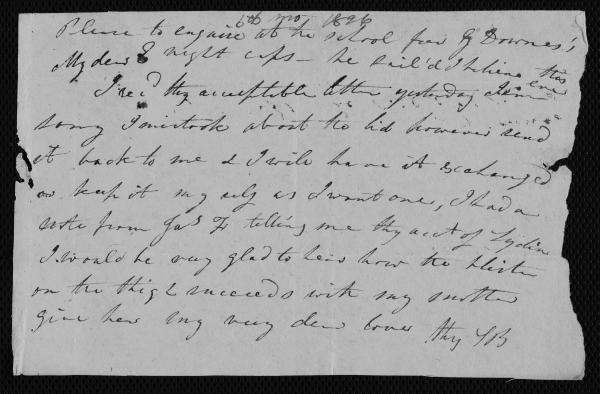 6th mo, 1828
Please to enquire at the school for G Downes's
My dear E night caps - he sail'd I believe this eve
I rec'd thy acceptable letter yesterday I am
sorry I mistook about the lid however send
it back to me & I will have it exchanged
or keep it my self as I want one, I had a
note from Jas F telling me thy acct of Lydia
I would be very glad to hear how the blister
on the thigh succeeds with my mother
give her my very dear love thy